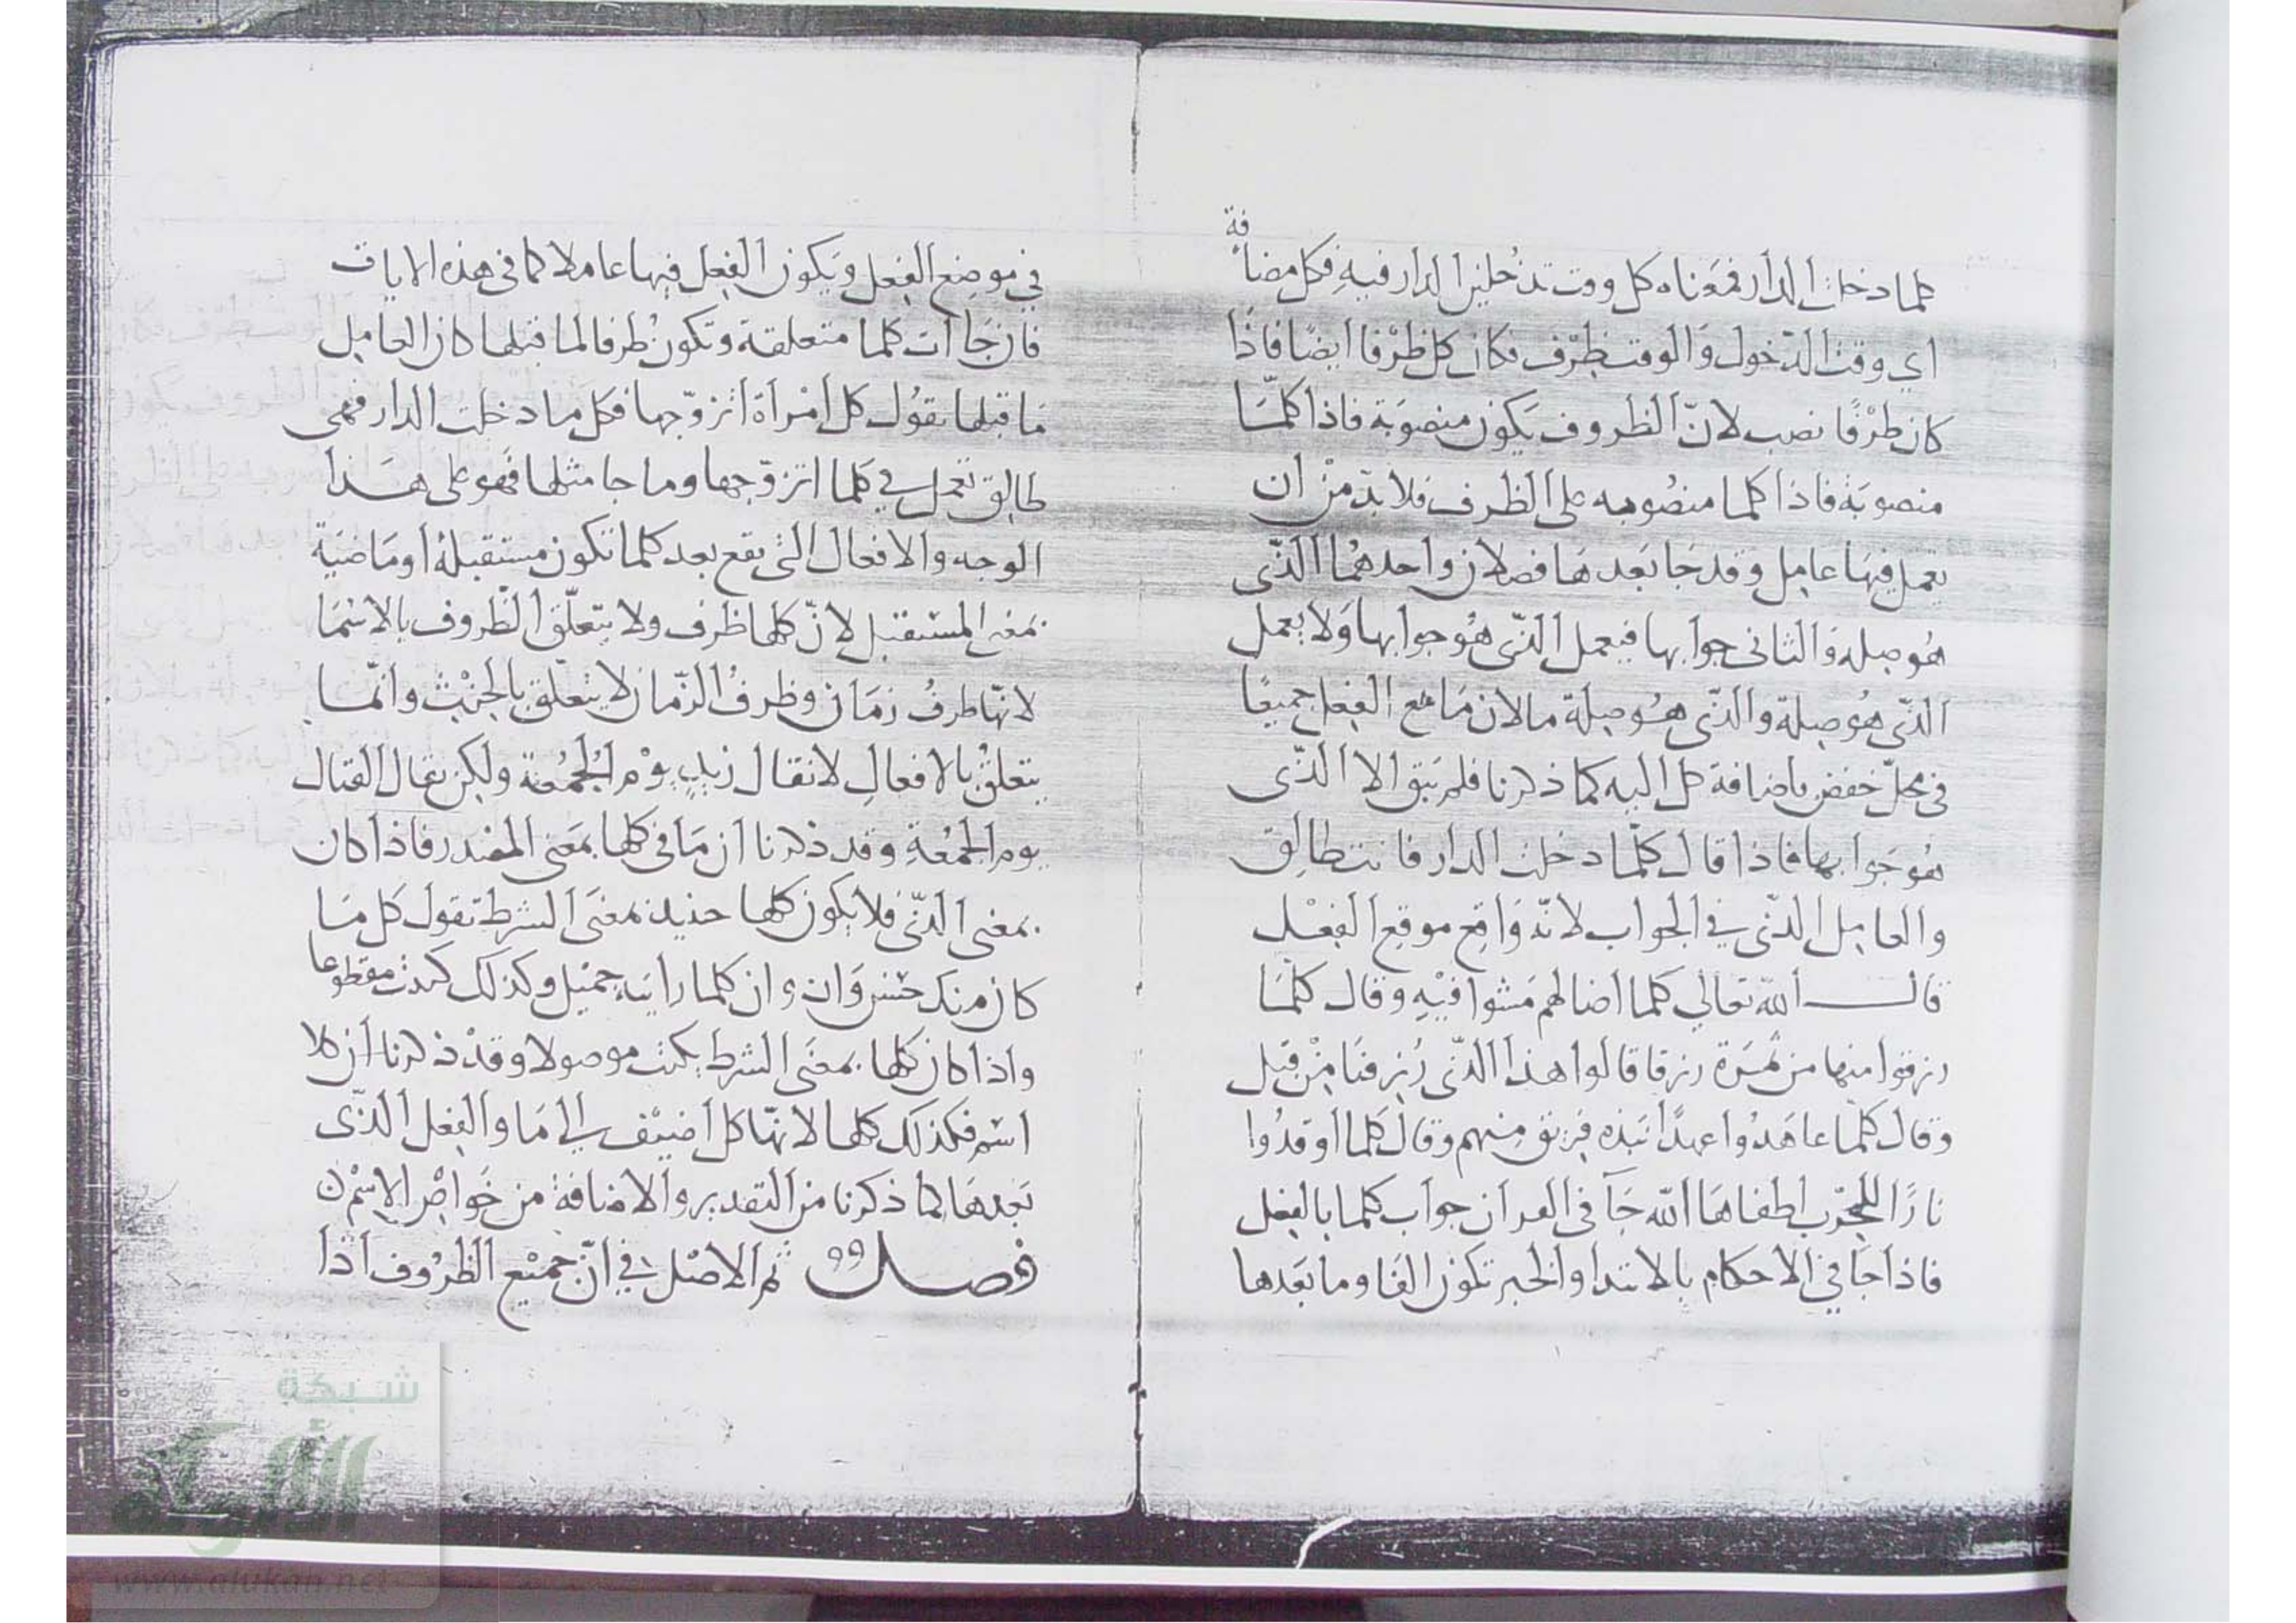 كلما دخلت الدار فمعناه كل وقت تدخلين الدار فيه فكل مضافة
اي وقت الدخول والوقت ظرف فكان كل ظرفا ايضا فاذا
كان ظرفا نصب لان الظروف يكون منصوبة فاذا كلما
منصوبة فاذا كلما منصوبه على الظرف فلا بد من ان
يعمل فيها عامل وقد جا بعدها فصلان واحدهما الذي
هو صلة والثاني جوابها فيعمل الذي هو جوابها ولا يعمل
الذي هو صلة والذي هو صلة ما لان ما مع الفعل جميعا
في محل خفض باضافة كل اليه كما ذكرنا فلم يبق الا الذي
هو جوابها فاذا قال كلما دخلت الدار فانت طالق
والعامل الذي في الجواب لانه واقع موقع الفعل
قال الله تعالى كلما اضا لهم مشوا فيه وقال كلما
رزقوا منها من ثمرة رزقا قالوا هذا الذي رزقنا من قبل
وقال كلما عاهدوا عهدا نبذه فريق منهم وقال كلما اوقدوا
نارا للحرب اطفاها الله جا في القران جواب كلما بالفعل
فاذا جا في الاحكام بالابتدا والخبر تكون الفا وما بعدها
في موضع الفعل ويكون الفعل فيها عاملا كما في هذه الايات
فان جاات كلما متعلقة وتكون ظرفا لما قبلها كان العامل
ما قبلها تقول كل امراة اتزوجها فكل ما دخلت الدار فهي
طالق تعمل في كلما اتزوجها وما جا مثلها فهو على هذا
الوجه والافعال التي يقع بعد كلما تكون مستقبلة او ماضية
بمعنى المستقبل لان كلما ظرف ولا يتعلق الظروف بالاسما
لانها ظرف زمان وظرف الزمان لا يتعلق بالجثث وانما
يتعلق بالافعال لا نقال زيد يوم الجمعة ولكن يقال القتال
يوم الجمعة وقد ذكرنا ان ما في كلما بمعنى المصدر فاذا كان
بمعنى الذي فلا يكون كلما حنيذ بمعنى الشرط تقول كل ما
كان منك حسن وان وان كلما رايته جميل وكذلك كتبت مقطوعا
واذا كان كلما بمعنى الشرط يكتب موصولا وقد ذكرنا ان كلا
اسم فكذلك كلما لانها كل اضيف الى ما والفعل الذي
بعدها لما ذكرنا من التقدير والاضافة من خواص الاسم
فصل ثم الاصل في ان جميع الظروف اذا
شبكة
الألوكة
www.alukah.net